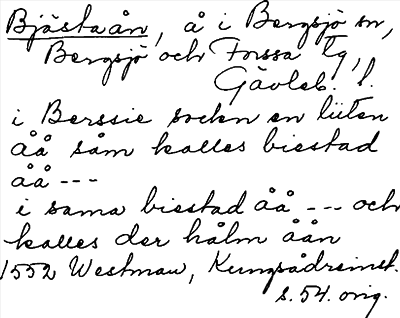 Bjästaån, å i Bergsjö sn,
Bergsjö och Forssa tg,
Gävleb. l.
i Berssie sockn en liiten
åå såm kalles biestad
åå ---
i sama biestad åå --- och
kalles der hålm åån
1552 Westman, Kungsådreinst.
s. 54. orig.